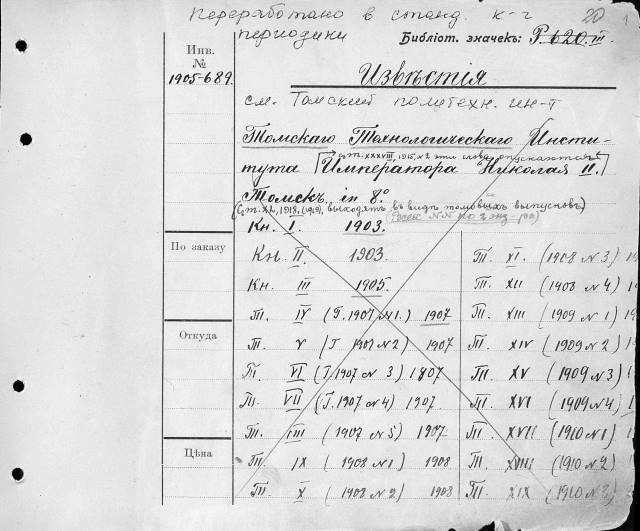 Переработано в станд. к-г 20
периодики
Библіот. значекъ: Р. 620. III.
Инв.
№
1905-689.
Извѣстія
см. Томский политехн. ин-т
Томскаго Технологическаго Инсти-
(с т. XXXVIII, 1915, №2 эти слова опускаются)
тута [Императора Николая II.]
Томскъ. in 8°
(Съ т. XL, 1918, (1919), выходятъ въ видѣ томовыхъ выпусковъ)
Кн. I. 1903.
По заказу
Кн. II. 1903.
Т. XI. (1908 №3)
Кн. III 1905.
Т. XII (1908 №4)
Т. IV (Г. 1907 №1.) 1907
Т. XIII (1909 №1)
Откуда
Т. V (Г 1907 №2) 1907
Т. XIV (1909 №2)
Т. VI (Г. 1907 № 3) 1807
Т. XV (1909 №3)
Т. VII (Г. 1907 №4) 1907.
Т. XVI (1909 №4)
Т. VIII (1907 №5) 1907
Т. XVII (1910 №1)
Цѣна
Т. IX (1908 №1) 1908
Т. XVIII (1910 №2)
Т. X (1908 №2) 1908
Т. XIX (1910 №3)